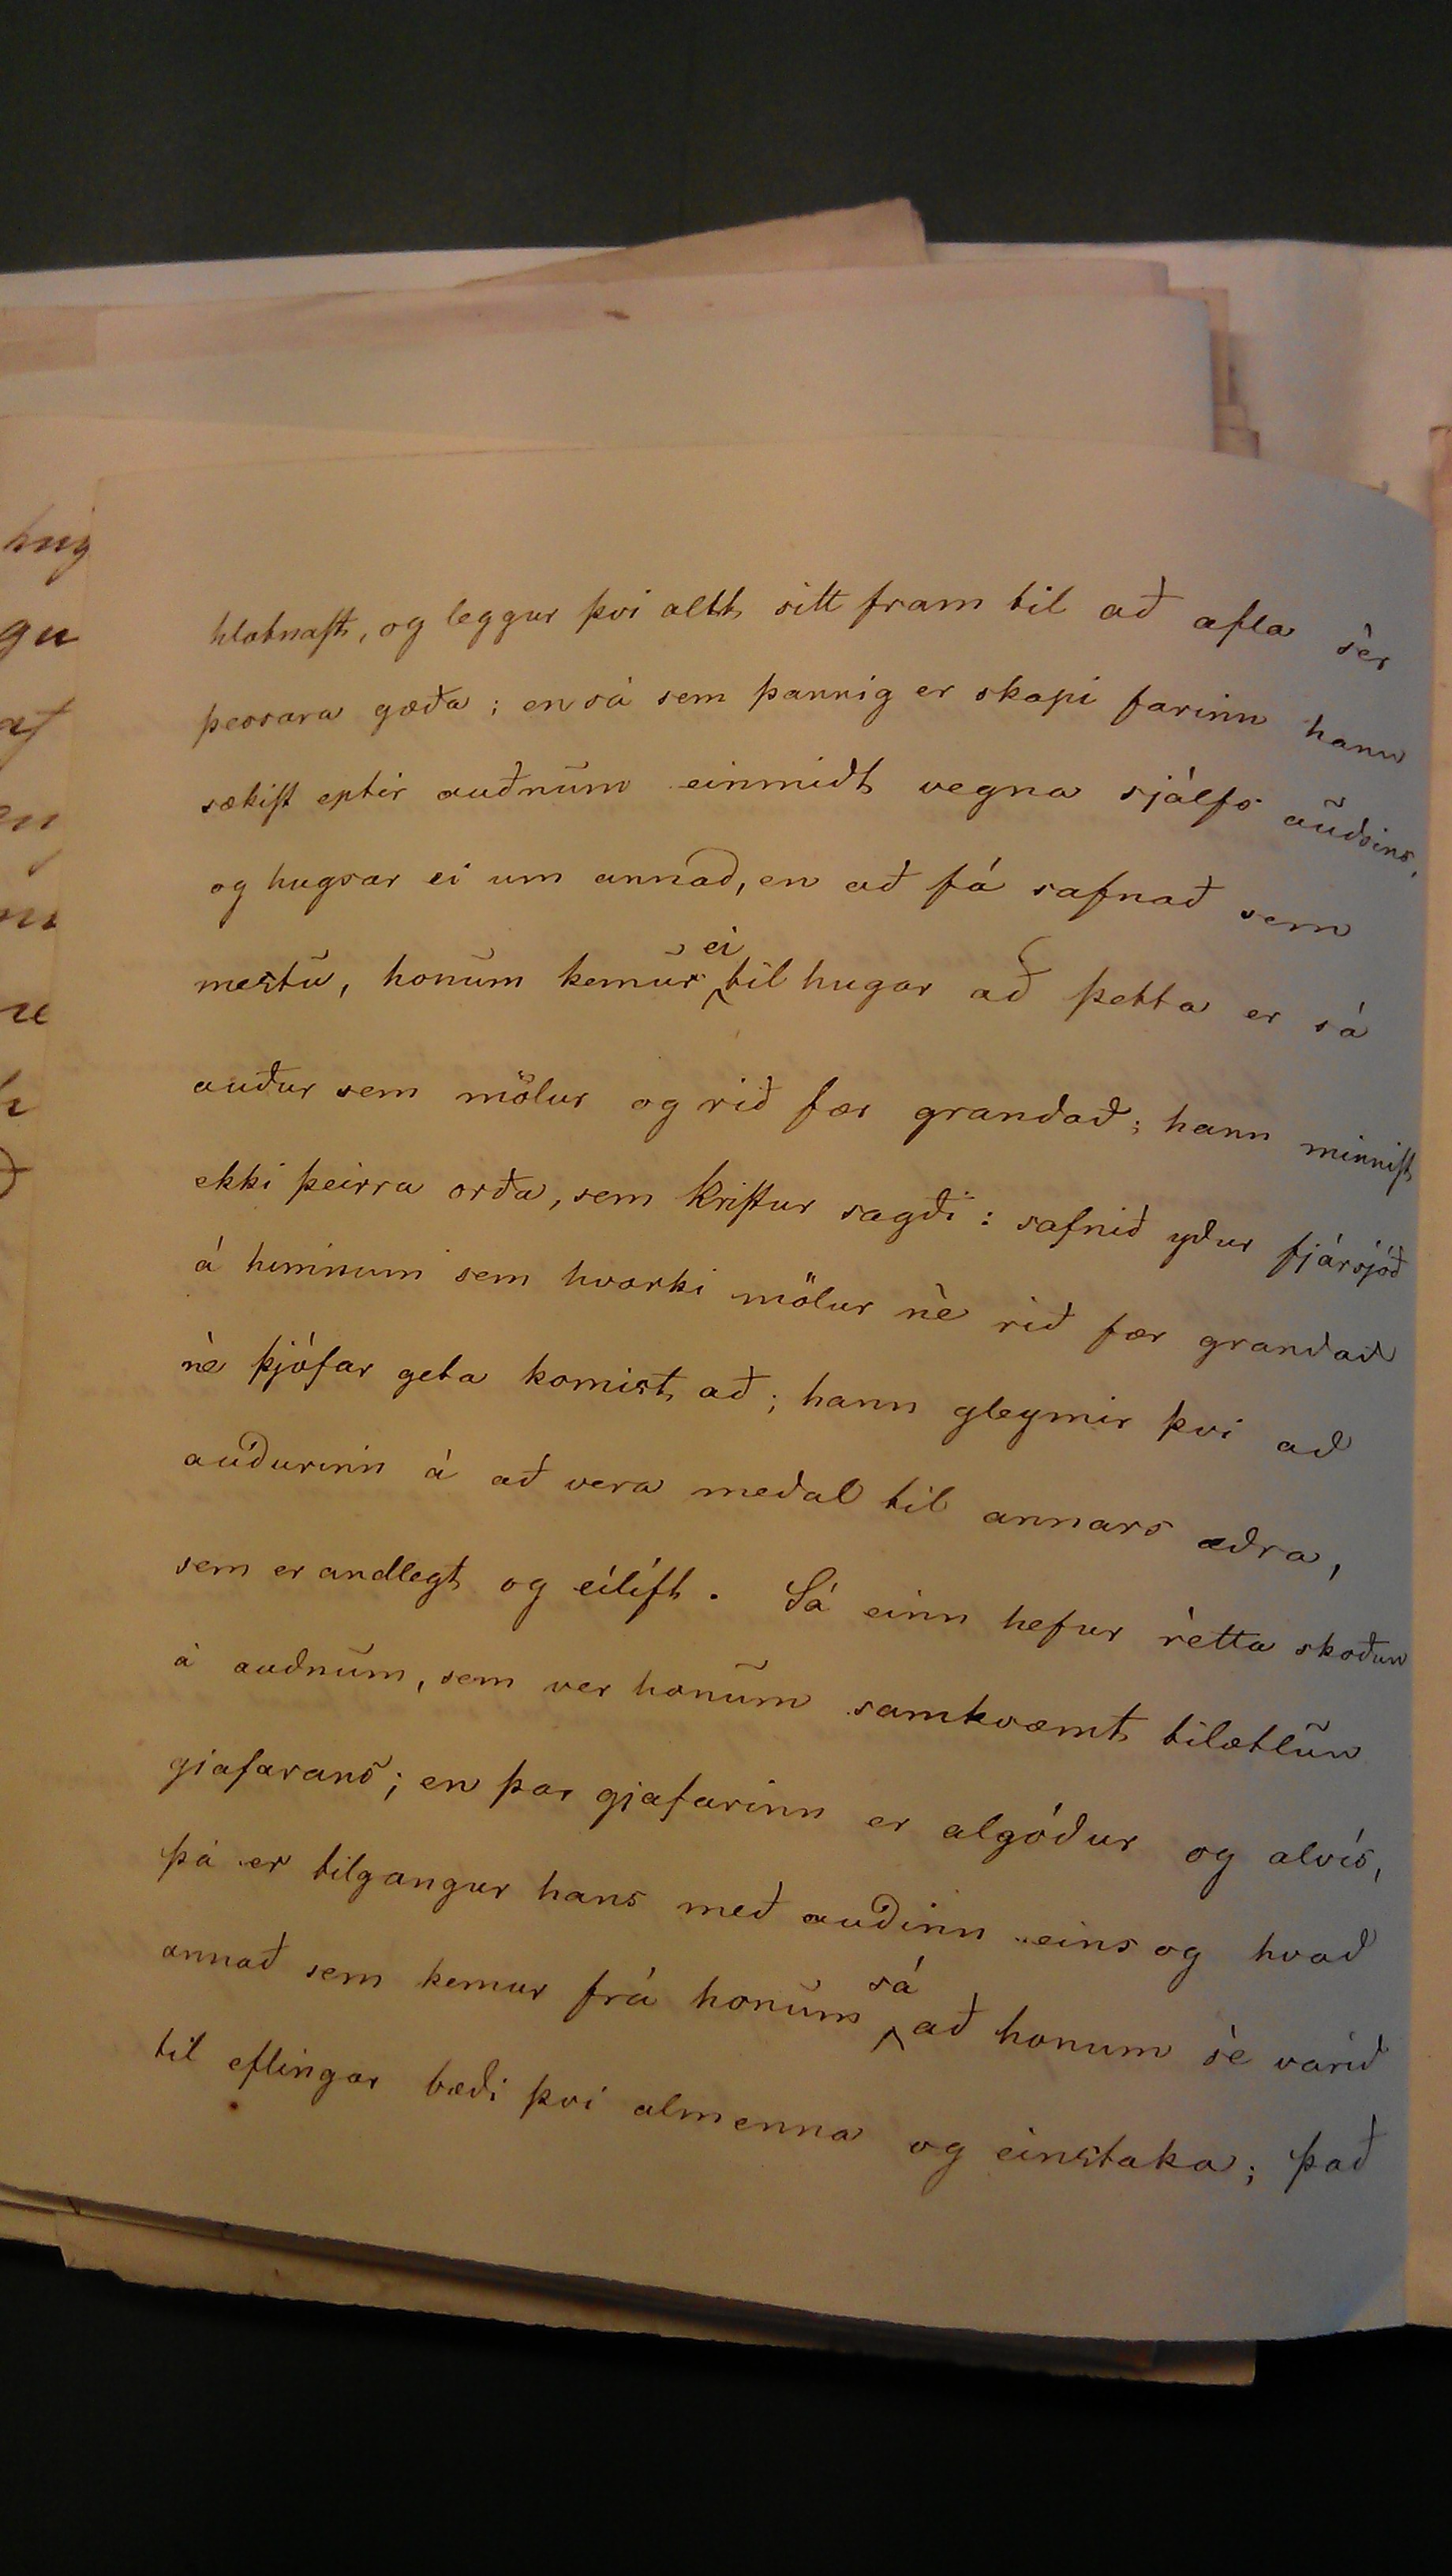 hlotnast, og leggur því allt sitt fram til að afla sèr
þessara gæða; en sá sem þannig er skapi farinn hann
sækist eptir auðnum einmiðt vegna sjálfs auðsins,
og hugsar ei um annað, en að fá safnað sem
mestu, honum kemur ei til hugar að þetta er sá
auður sem mölur og rið fær grandað; hann minnist
ekki þeirra orða, sem Kristur sagði: safnið yður fjársjóð
á himinum sem hvorki mölur nè rið fær grandað
nè þjófar geta komist að; hann gleymir því að
auðurinn á að vera meðal til annars æðra,
sem er andlegt og eilíft. Sá einn hefur rètta skoðun
á auðnum, sem ver honum samkvæmt tilætlun
gjafarans; en þar gjafarinn er algóður og alvís,
þá er tilgangur hans með auðinn eins og hvað
annað sem kemur frá honum sá að honum sè varið
til eflingar bæði því almenna og einstaka; það